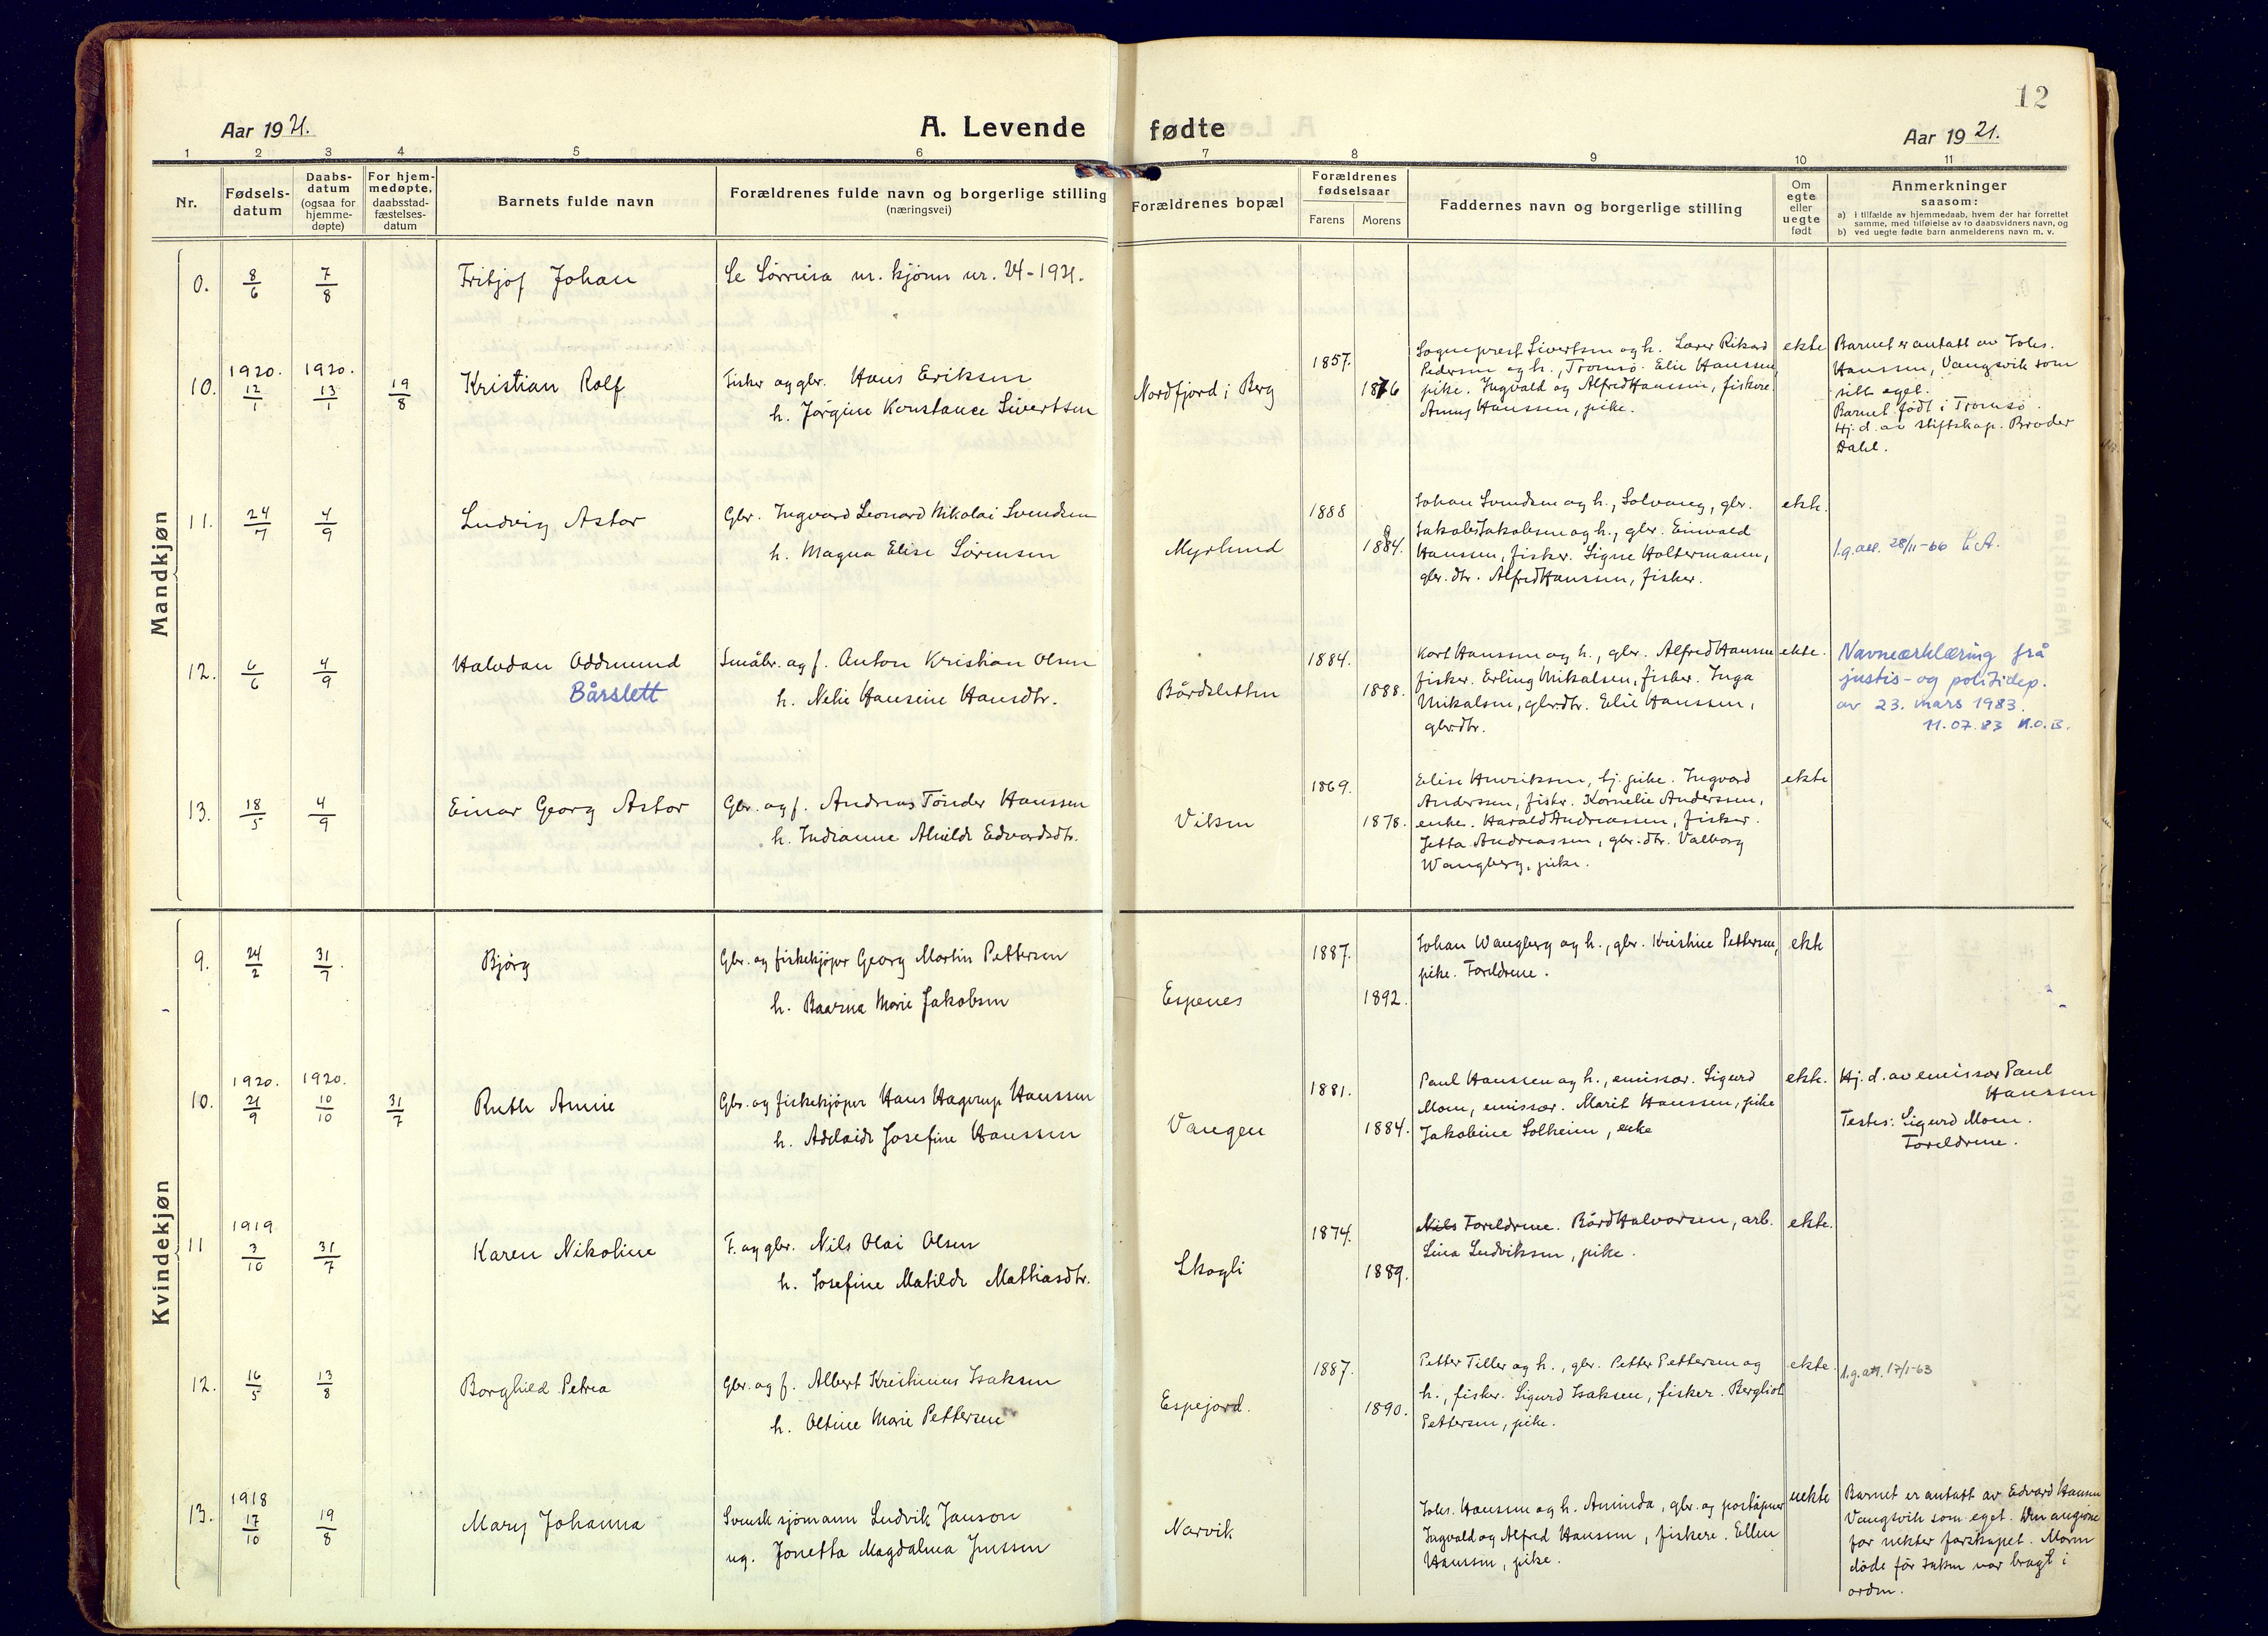 12
Aar 1921.
A. Levende fødte
Aar 1921.
1 2 3 4 5 6 7 8 9 10 11
Nr.
Fødsels-
datum
Daabs-
datum
(ogsaa for
hjemme-
døpte)
For hjem-
medøpte,
daabsstad-
fæstelses-
datum
Barnets fulde navn
Forældrenes fulde navn og borgerlige stilling
(næringsvei)
Forældrenes bopæl
Forældrenes
fødselsaar
Farens Morens
Faddernes navn og borgerlige stilling
Om
egte
eller
uegte
født
Anmerkninger
saasom:
a) i tilfælde av hjemmedaab, hvem der har forrettet
samme, med tilføielse av to daabsvidners navn, og
b) ved uegte fødte barn anmelderens navn m. v.
Mandkjøn
0. 8/6 7/8 Fritjof Johan Se Sørreisa m. kjønn nr. 24-1921.
10. 1920. 12/1 1920. 13/1 19/8 Kristian Rolf
Fisker og gbr. Hans Eriksen
h. Jørgine Konstance Sivertsen
Nordfjord i Berg
1857.
1876
Sogneprest Sivertsen og h. Lærer Rikard
Pedersen og h., Tromsø. Elie Hanssen,
pike. Ingvald og Alfred Hanssen, fiskere.
Anny Hanssen, pike.
ekte
Barnet er antatt av Johs.
Hanssen, Vangsvik som
sitt eget.
Barnet født i Tromsø.
Hj. d. av stiftskap. Broder
Dahl.
11. 24/7 4/9 Ludvig Astor
Gbr. Ingvard Leonard Nikolai Svendsen
h. Magna Elise Sørensen
Myrlund
1888
1884.
Johan Svendsen og h., Solvang, gbr.
Jakob Jakobsen og h., gbr. Einvald
Hanssen, fisker. Signe Holtermann,
gbr. dtr. Alfred Hanssen, fisker.
ekte.
28/11-66
12. 6/6 4/9 Halvdan Oddmund
Bårslett
Småbr. og f. Anton Kristian Olsen
h. Nelie Hansine Hansdtr.
Bårdsletten
1884.
1888.
Karl Hanssen og h., gbr. Alfred Hanssen
fisker. Erling Mikalsen, fisker. Inga
Mikalsen, gbr.dtr. Elie Hanssen,
gbr.dtr.
ekte.
Navneerklæring frå
justis- og politidep.
av 23. mars 1983.
11.07.83 N.O.B.
13. 18/5 4/9 Einar Georg Astor
Gbr. og f. Andreas Tønder Hanssen
h. Indianne Alvilde Edvardsdtr.
Viken
1869.
1878.
Elise Henriksen, tj. pike. Ingvard
Anderssen, fisker. Kornelie Anderssen,
enke. Harald Andreassen, fisker.
Jetta Andreassen, gbr.dtr. Valborg
Wangberg, pike.
ekte
Kvindekjøn
9. 24/2 31/7. Bjørg
Gbr. og fiskekjøper Georg Martin Pettersen
h. Baarna Marie Jakobsen
Espenes
1887.
1892.
Johan Wangberg og h., gbr. Kristine Pettersen,
pike. Foreldrene.
ekte
10. 1920. 21/9 1920. 10/10 31/7 Ruth Annie
Gbr. og fiskekjøper Hans Hagerup Hanssen
h. Adelaide Josefine Hanssen
Vangen
1881.
1884.
Paul Hanssen og h., emissær. Sigurd
Moen, emissær. Marit Hanssen, pike
Jakobine Solheim, enke
ekte.
Hj. d. av emissær Paul
Hanssen
Testes: Sigurd Moen.
Foreldrene.
11 1919 3/10 31/7 Karen Nikoline
F. og gbr. Nils Olai Olsen
h. Josefine Matilde Mathiasdtr.
Skogli
1874.
1889.
Nils Foreldrene. Bård Halvorsen, arb.
Lina Ludviksen, pike.
ekte.
12. 16/5 13/8 Borghild Petrea
Gbr. og f. Albert Kristinus Isaksen
h. Oltine Marie Pettersen
Espejord.
1887.
1890.
Petter Tiller og h., gbr. Petter Pettersen og
h., fisker. Sigurd Isaksen, fisker. Bergliot
Pettersen, pike.
ekte.
17/1-63
13. 1918 17/10 19/8 Mary Johanna
Svensk sjømann Ludvik Janson
ug. Jonetta Magdalena Jenssen
Narvik
Johs. Hanssen og h. Aminda, gbr. og poståpner
Ingvald og Alfred Hanssen, fiskere. Ellen
Hanssen, pike.
uekte
Barnet er antatt av Edvard Hansen
Vangsvik som eget. Den angivne
far nekter farskapet. Moren
døde før saken var bragt i
orden.